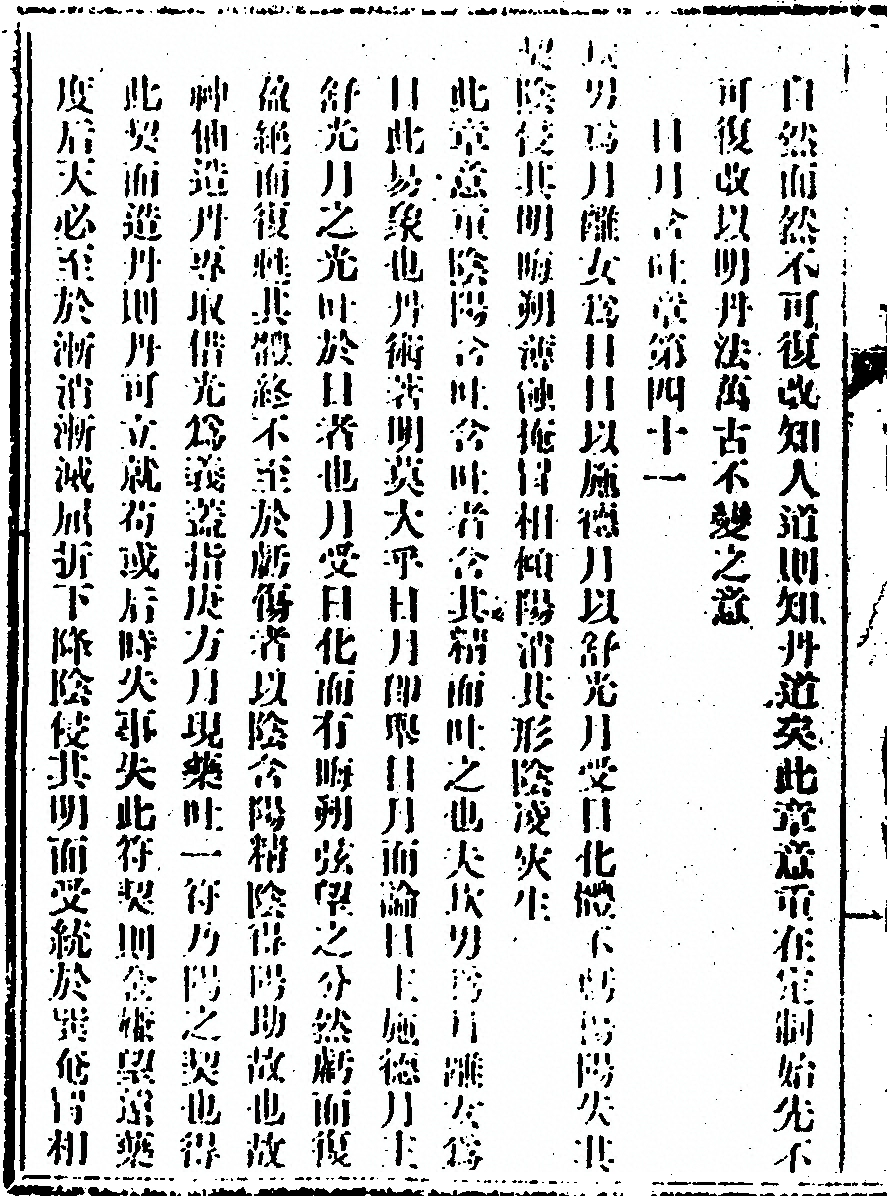 自然而然不可復改知人道則知丹道矣此章意重在定制始先不
可復改以明丹法萬古不變之意
日月含吐章第四十一
坎男為月離女為日日以施德月以舒光月受日化體不虧傷陽失其
契陰侵其明晦朔薄蝕掩冒相傾陽消其形陰凌災生
此章意重陰陽含吐含吐者含其精而吐之也夫坎男為月離女為
日此易象也丹術著明莫大乎日月即舉日月而論日主施德月主
舒光月之光吐於日者也月受日化而有晦朔弦望之分然虧而復
盈絕而復甦其體終不至於虧傷者以陰含陽精陰得陽助故也故
神仙造丹專取借光為義蓋指庚方月現藥吐一符乃陽之契也得
此契而造丹則丹可立就苟或后時失事失此符契則金嫌望遠藥
度后天必至於漸消漸滅屈折下降陰侵其明而受統於巽奄冒相